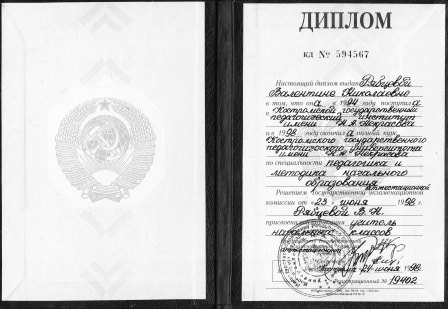 ДИПЛОМ
КД № 594567
Настоящий диплом выдан Рябцевой
Валентине Николаевне
в том, что она в 1994 году поступила
в Костромской государственный
педагогический институт
имени Н.А. Некрасова
и в 1998 году окончила полный курс
Костромского государственного
педагогического университета
имени Н.А. Некрасова
по специальности педагогика и
методика начального
образования
Решением Государственной аттестационной
комиссии от «23» июня 1998 г.
Рябцевой В. Н.
присвоена квалификация учитель
начальных классов
24 июня 1998
Регистрационный № 19402